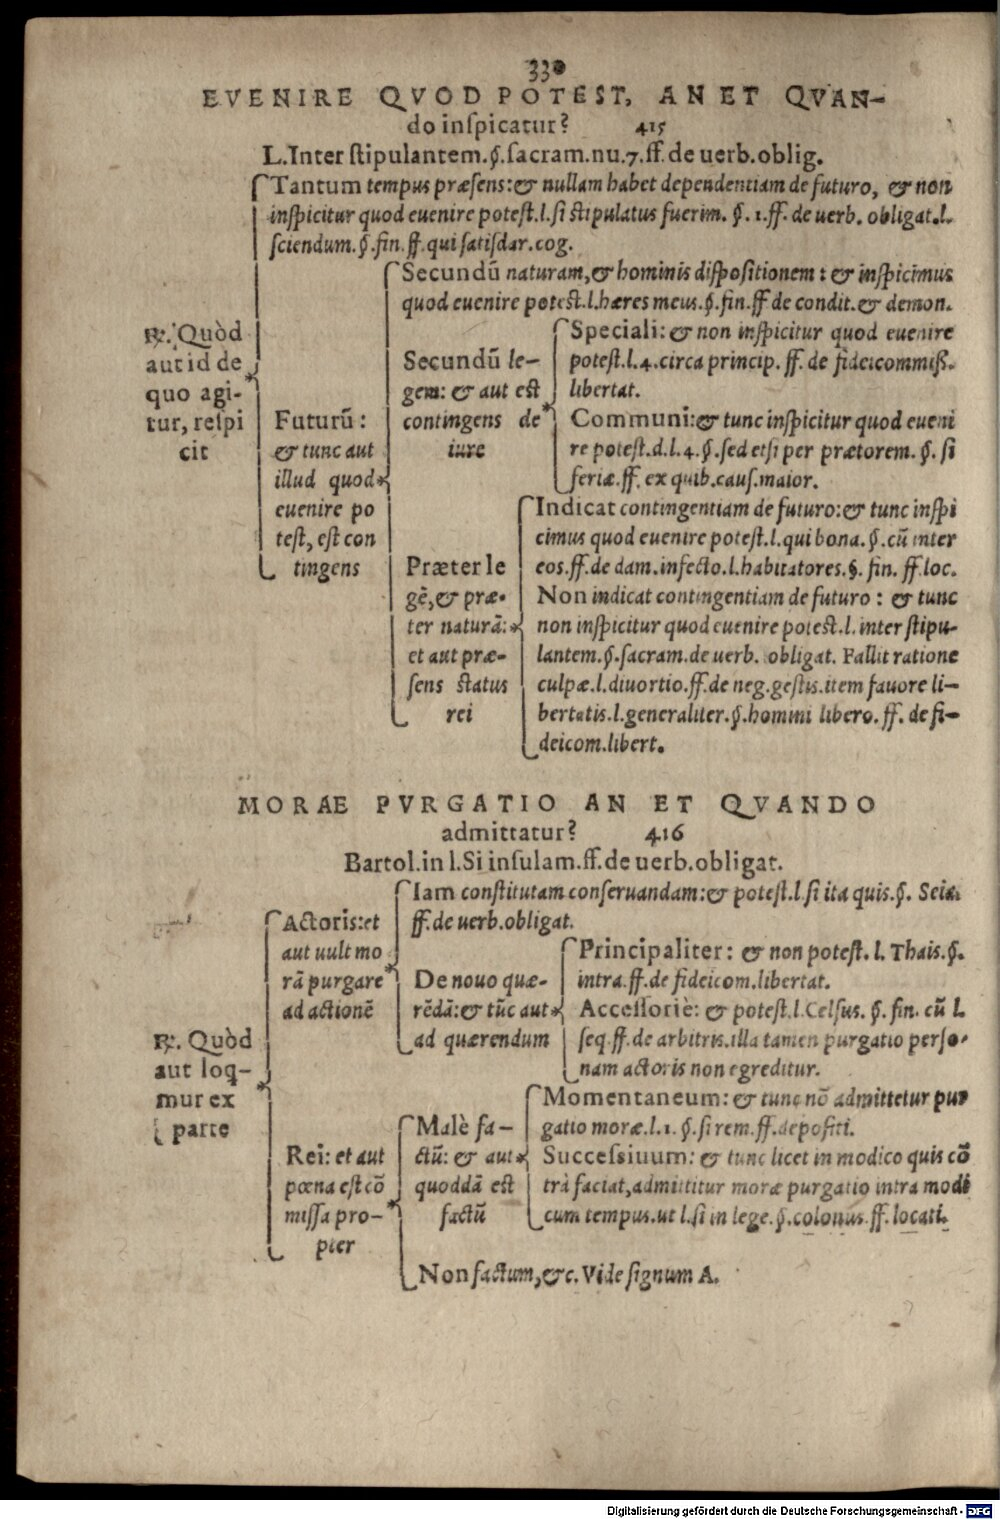 330
EVENIRE QVOD POTEST, AN ET QVAN-
do inſpicatur? 415
L.Inter ſtipulantem.§.ſacram.nu.7.ff.de uerb.oblig.
Tantum tempus præſens:& nullam habet dependentiam de futuro, & non
inſpicitur quod euenire poteſt.l.ſi ſtipulatus fuerim. §. 1.ff. de uerb. obligat.l.
ſciendum.§.fin.ff.qui ſatiſdar.cog.
℞. Quòd
aut id de
quo agi-
tur, reſpi
cit
Futurū:
& tunc aut
illud quod
euenire po
teſt, eſt con
tingens
Secundū naturam,& hominis diſpoſitionem: & inſpicimus
quod euenire poteſt.l.hæres meus.§.fin.ff de condit.& demon.
Secundū le-
gem: & aut eſt
contingens de
iure
Speciali: & non inſpicitur quod euenire
poteſt.l.4.circa princip. ff. de fideicommiſſ.
libertat.
Communi:& tunc inſpicitur quod eueni
re poteſt.d.l.4.§.ſed etſi per prætorem.§. ſi
feriæ.ff. ex quib.cauſ.maior.
Præter le
gē,& præ-
ter naturā:
et aut præ-
ſens ſtatus
rei
Indicat contingentiam de futuro:& tunc inſpi
cimus quod euenire poteſt.l.qui bona.§.cū inter
eos.ff.de dam.infecto.l.habitatores.§. fin. ff.loc.
Non indicat contingentiam de futuro: & tunc
non inſpicitur quod euenire poteſt.l. inter ſtipu-
lantem.§.ſacram.de uerb. obligat. Fallit ratione
culpæ.l.diuortio.ff.de neg.geſtis.item fauore li-
bertatis.l.generaliter.§.homini libero. ff. de fi-
deicom.libert.
MORAE PVRGATIO AN ET QVANDO
admittatur? 416
Bartol.in l.Si inſulam.ff.de uerb.obligat.
℞. Quòd
aut loq-
mur ex
parte
Actoris:et
aut uult mo
rā purgare
ad actionē
Iam conſtitutam conſeruandam:& poteſt.l.ſi ita quis.§. Seia.
ff.de uerb.obligat.
De nouo quæ-
rēdā:& tūc aut
ad quærendum
Principaliter: & non poteſt. l. Thais.§.
intra.ff.de fideicom.libertat.
Acceſſoriè: & poteſt.l.Celſus. §. fin. cū l.
ſeq.ff.de arbitris.illa tamen purgatio perſo-
nam actoris non egreditur.
Rei: et aut
pœna eſt cō
miſſa pro-
pter
Malè fa-
ctū: & aut
quoddā eſt
factū
Momentaneum: & tunc nō admittetur pur
gatio moræ.l.1.§.ſi rem.ff.depoſiti.
Succeſſiuum: & tunc licet in modico quis cō
trà faciat,admittitur moræ purgatio intra modi
cum tempus.ut l.ſi in lege.§.colonus.ff.locati.
Non factum,&c. Vide ſignum A.
Digitalisierung gefördert durch die Deutsche Forschungsgemeinschaft - DFG